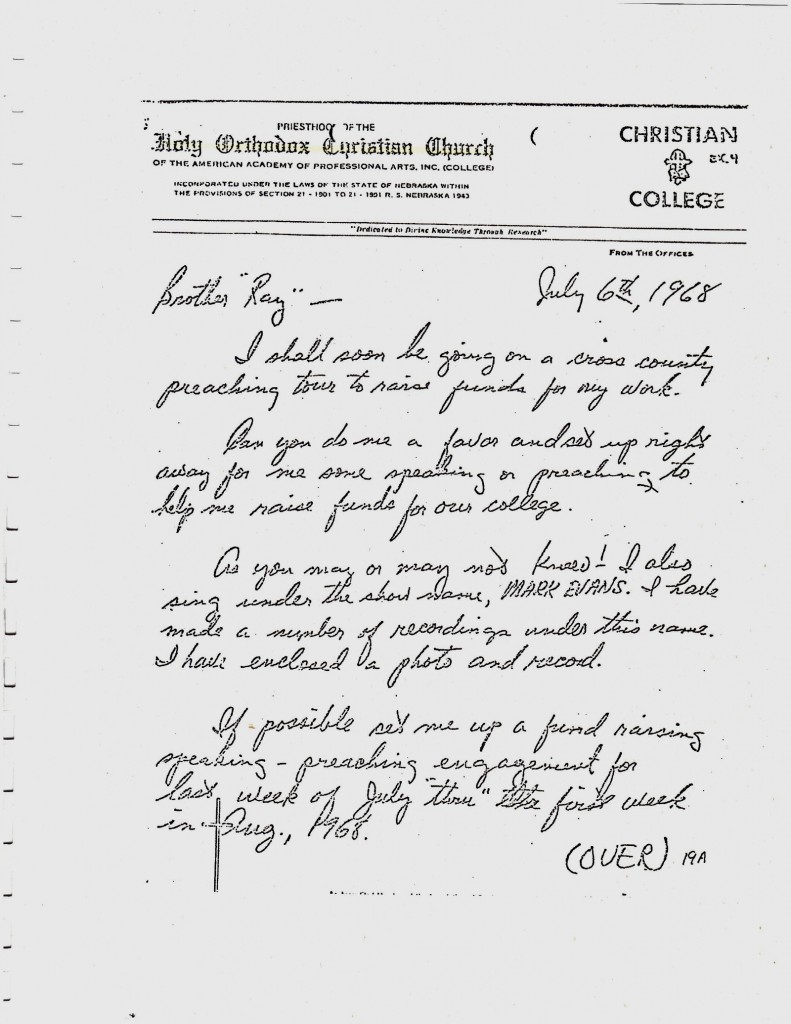 PRIESTHOO OF THE
Holy Orthodox Christian Church
OF THE AMERICAN ACADEMY OF PROFESSIONAL ARTS, INC. (COLLEGE)
INCORPORATED UNDER THE LAWS OF THE STATE OF NEBRASKA WITHIN
THE PROVISIONS OF SECTION 21 - 1901 TO 21 - 1991 R. S. NEBRASKA 1943
CHRISTIAN
EX.4
COLLEGE
"Dedicated to Divine Knowledge Through Research"
FROM THE OFFICES
Brother "Ray" —
July 6th, 1968
I shall soon be going on a cross county
preaching tour to raise funds for my work.
Can you do me a favor and set up right
away for me some speaking or preaching to
help me raise funds for our college.
As you may or may not know! I also
sing under the show name, MARK EVANS. I have
made a number of recordings under this name.
I have enclosed a photo and record.
If possible set me up a fund raising
speaking - preaching engagement for
last week of July "thru" the first week
in Aug., 1968.
(OVER) 19A